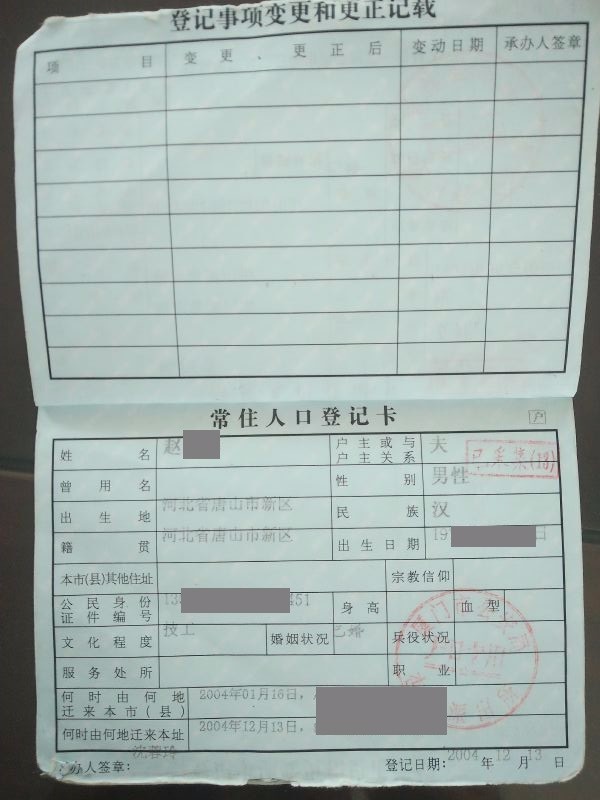 登记事项变更和更正记载
项 目 变更、更正后 变动日期 承办人签章
常住人口登记卡 户
姓名 赵 户主或与户主关系 夫
已采集(13)
曾用名 性别 男性
出生地 河北省唐山市新区 民族 汉
籍贯 河北省唐山市新区 出生日期 19 日
本市(县)其他住址 宗教信仰
公民身份证件编号 13 451 身高 血型
文化程度 技工 婚姻状况 已婚 兵役状况
服务处所 职业
何时由何地迁来本市(县) 2004年01月16日,
何时由何地迁来本址 2004年12月13日,
沈蓉玲
承办人签章: 登记日期: 2004年12月13日